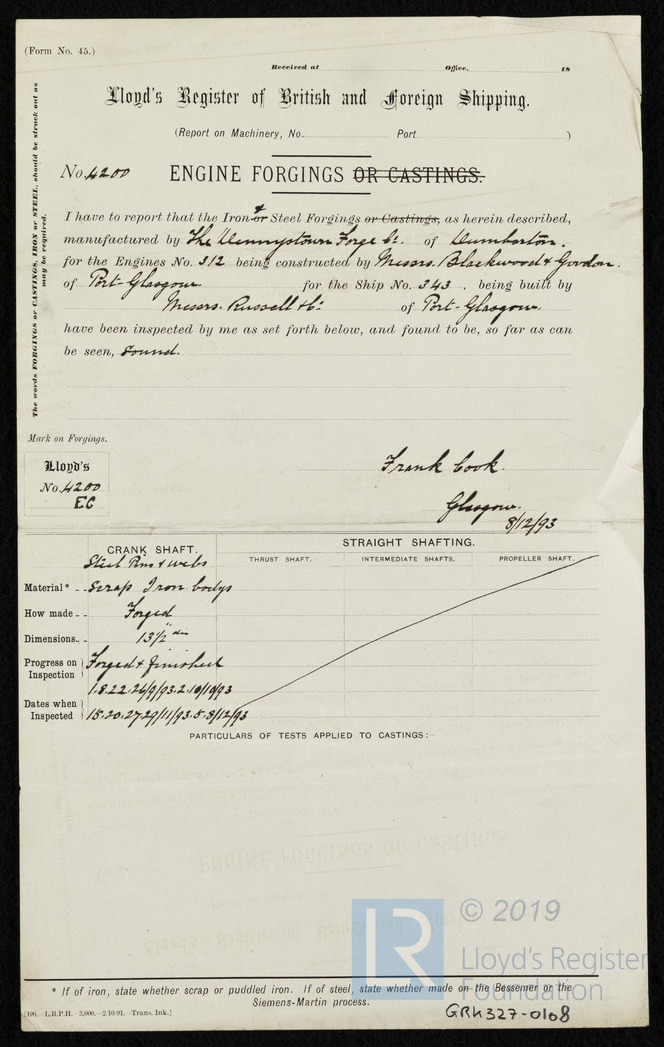 (Form No. 45.)
Received at Office, 18
Lloyd's Register of British and Foreign Shipping.
(Report on Machinery, No. Port )
No. 4200 ENGINE FORGINGS OR CASTINGS.
The words FORGINGS or CASTINGS, IRON or STEEL, should be struck out as may be required.
I have to report that the Iron or & Steel Forgings or Castings, as herein described,
manufactured by The Dennystown Forge Co. of Dumbarton.
for the Engines No. 312 being constructed by Messrs. Blackwood & Gordon.
of Port-Glasgow for the Ship No. 343 . being built by
Messrs. Russell & Co. of Port-Glasgow.
have been inspected by me as set forth below, and found to be, so far as can
be seen, sound.
Mark on Forgings.
Lloyd's
No. 4200
EC
Frank Cook.
Glasgow.
8/12/93
CRANK SHAFT. STRAIGHT SHAFTING.
THRUST SHAFT. INTERMEDIATE SHAFTS. PROPELLER SHAFT.
Steel Pins & Webs
Material* Scrap Iron bodys
How made Forged
Dimensions 13½" dia
Progress on Inspection Forged & finished
1.8.22.26/9/93.2.10/10/93
Dates when Inspected 15.20.27.29/11/93.5.8/12/93
PARTICULARS OF TESTS APPLIED TO CASTINGS:—
© 2019
Lloyd's Register
Foundation
LR
* If of iron, state whether scrap or puddled iron. If of steel, state whether made on the Bessemer or the
Siemens-Martin process.
[100.—L.R.P.H.—3,000.—2/10/91.—Trans. Ink.]
GRK327-0108